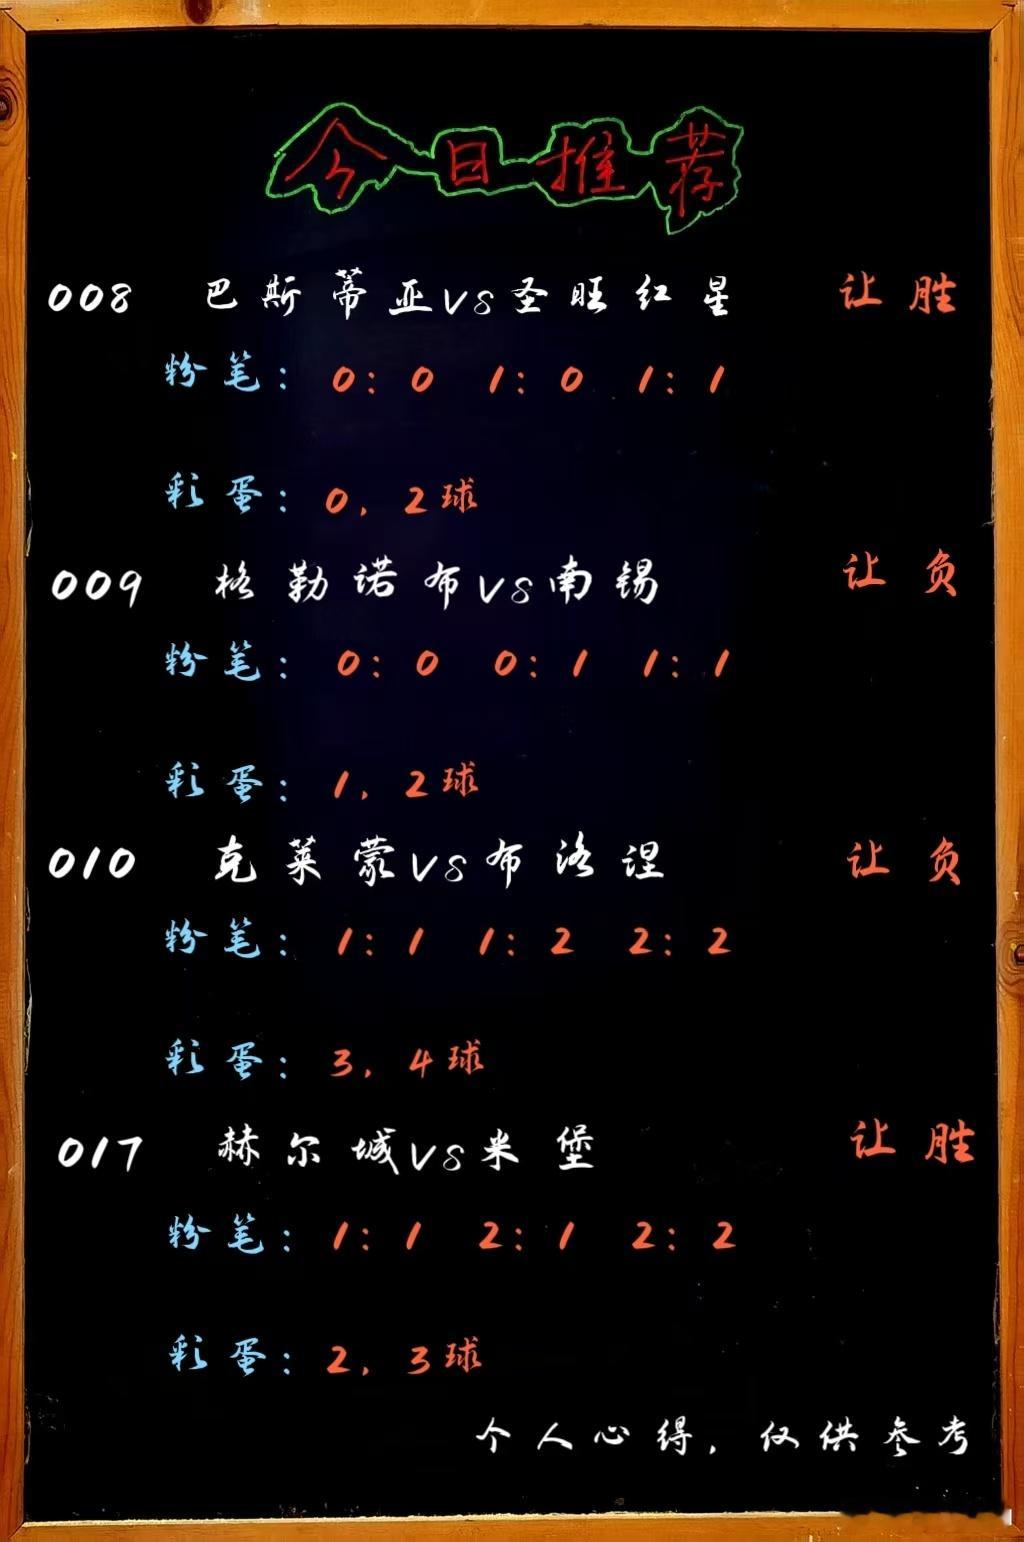 今日推荐
008 巴斯蒂亚VS圣旺红星 让胜
粉笔: 0:0 1:0 1:1
彩蛋: 0, 2球
009 格勒诺布VS南锡 让负
粉笔: 0:0 0:1 1:1
彩蛋: 1, 2球
010 克莱蒙VS布洛涅 让负
粉笔: 1:1 1:2 2:2
彩蛋: 3, 4球
017 赫尔城VS米堡 让胜
粉笔: 1:1 2:1 2:2
彩蛋: 2, 3球
个人心得, 仅供参考